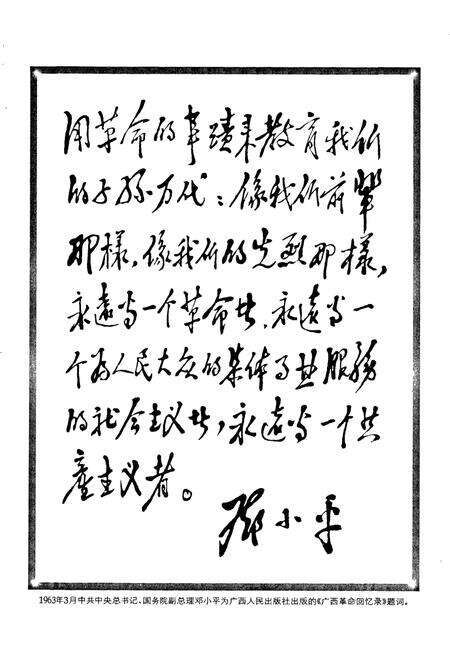 用革命的事蹟来教育我们
的子孙万代：像我们前輩
那樣，像我们的先烈那樣，
永遠当一个革命者，永遠当一
个为人民大众的集体事业服務
的社会主义者，永遠当一个共
產主义者。
邓小平
1963年3月中共中央总书记、国务院副总理邓小平为广西人民出版社出版的《广西革命回忆录》题词。